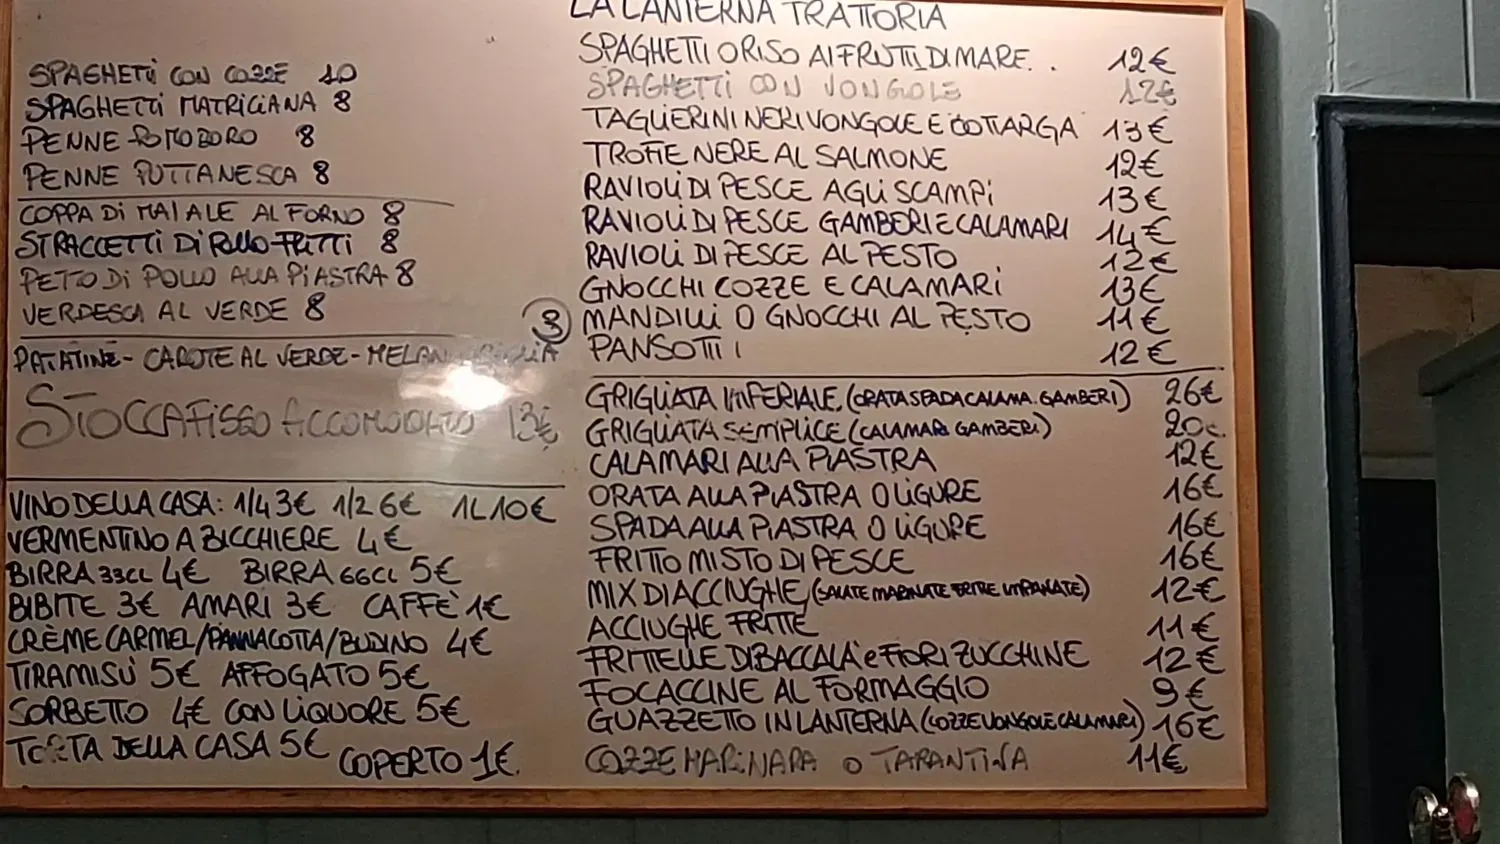 SPAGHETTI CON COZZE 10
SPAGHETTI MATRICIANA 8
PENNE POMODORO 8
PENNE PUTTANESCA 8
COPPA DI MAIALE AL FORNO 8
STRACCETTI DI POLLO FRITTI 8
PETTO DI POLLO ALLA PIASTRA 8
VERDESCA AL VERDE 8
PATATINE - CAROTE AL VERDE -
STOCCAFISSO ACCOMODATO 13€
VINO DELLA CASA: 1/4 3€ 1/2 6€ 1L 10€
VERMENTINO A BICCHIERE 4€
BIRRA 33CL 4€ BIRRA 66CL 5€
BIBITE 3€ AMARI 3€ CAFFÈ 1€
CRÈME CARMEL/PANNACOTTA/BUDINO 4€
TIRAMISÙ 5€ AFFOGATO 5€
SORBETTO 4€ CON LIQUORE 5€
TORTA DELLA CASA 5€
COPERTO 1€
LA LANTERNA TRATTORIA
SPAGHETTI O RISO AI FRUTTI DI MARE.. 12€
SPAGHETTI CON VONGOLE 12€
TAGLIERINI NERI VONGOLE E BOTTARGA 13€
TROFIE NERE AL SALMONE 12€
RAVIOLI DI PESCE AGLI SCAMPI 13€
RAVIOLI DI PESCE GAMBERI E CALAMARI 14€
RAVIOLI DI PESCE AL PESTO 12€
GNOCCHI COZZE E CALAMARI 13€
MANDILLI O GNOCCHI AL PESTO 11€
PANSOTTI 12€
GRIGLIATA IMPERIALE (ORATA SPADA CALAMA. GAMBERI) 26€
GRIGLIATA SEMPLICE (CALAMARI GAMBERI) 20€
CALAMARI ALLA PIASTRA 12€
ORATA ALLA PIASTRA O LIGURE 16€
SPADA ALLA PIASTRA O LIGURE 16€
FRITTO MISTO DI PESCE 16€
MIX DI ACCIUGHE (SALATE MARINATE FRITTE IMPANATE) 12€
ACCIUGHE FRITTE 11€
FRITTELLE DI BACCALÀ e FIORI ZUCCHINE 12€
FOCACCINE AL FORMAGGIO 9€
GUAZZETTO IN LANTERNA (COZZE VONGOLE CALAMARI) 16€
COZZE MARINARA O TARANTINA 11€